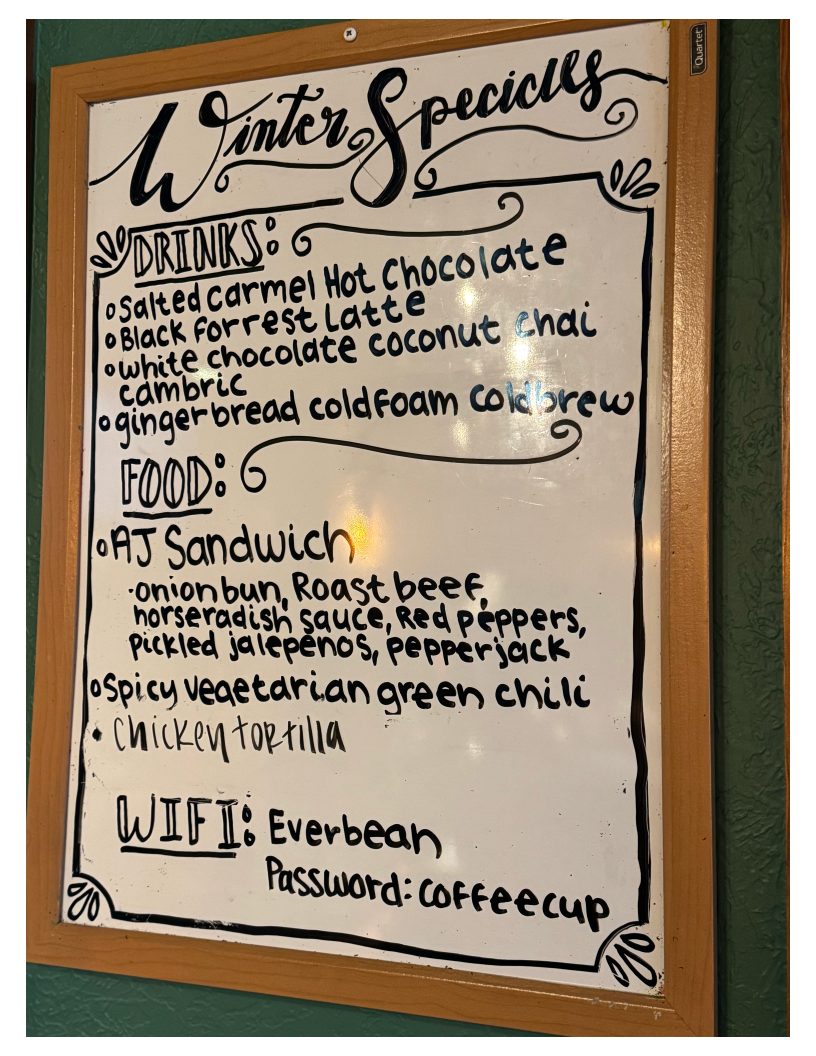 Quartet
Winter Specials
DRINKS:
Salted carmel Hot Chocolate
Black forrest Latte
white chocolate coconut chai
cambric
gingerbread coldfoam coldbrew
FOOD:
AJ Sandwich
·onion bun, Roast beef,
horseradish sauce, Red peppers,
Pickled jalepenos, pepperjack
Spicy vegetarian green chili
• Chicken tortilla
WIFI: Everbean
Password: coffeecup